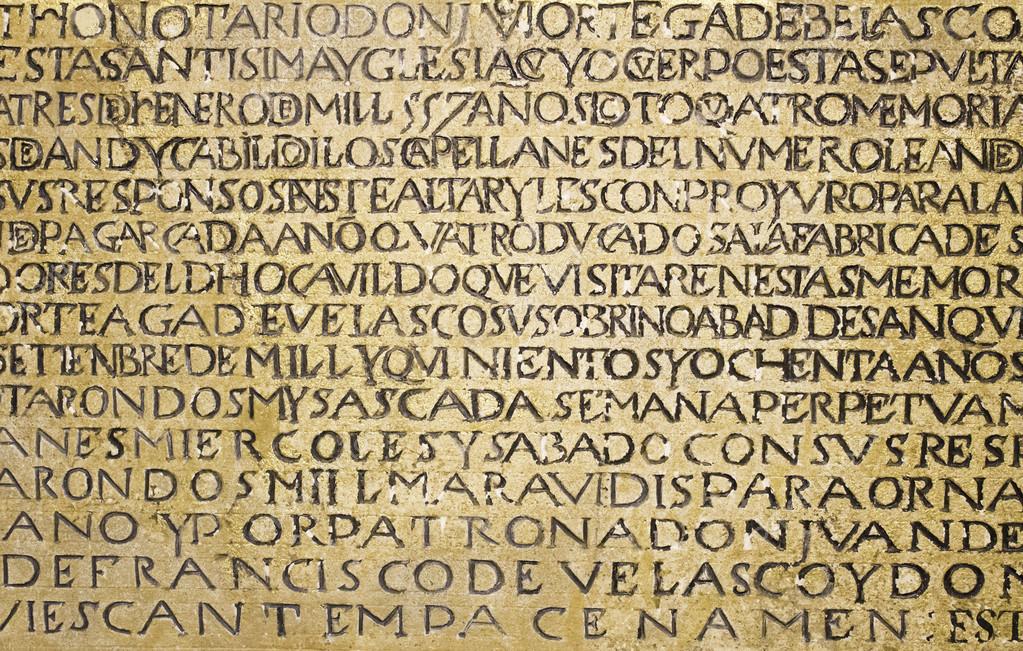 THONOTARIODONJVVIORTEGADEBELASCO
ESTASANTISIMAYGLESIACVYOCVERPOESTASEPVLTA
ATRESDEHENERODEMILLSS7ZAÑOSDOTOQVATROMEMORIA
SEDANDYCABILDDILOSCAPELLANESDELNVMEROLEANDE
SVSRESPONSOSENESTEALTARYLESCONPROYVROPARALA
DEPAGARCADAAÑOQVATRODVCADOSALAFABRICADES
DORESDELDHOCAVILDOQVEVISITARENESTASMEMOR
ORTEAGADEVELASCOSVSOBRINOABADDESANQVI
SETTENBREDEMILLYQVINIENTOSYOCHENTAANOS
TARONDOSMYSASCADASEMANAPERPETVAM
ANESMIERCOLESYSABADOCONSVSRESP
ARONDOSMIILMARAVEDISPARAORNA
ANOYPORPATRONADONJVANDE
DEFRANCISCODEVELASCOYDON
VIESCANTEMPACENAMEN:EST